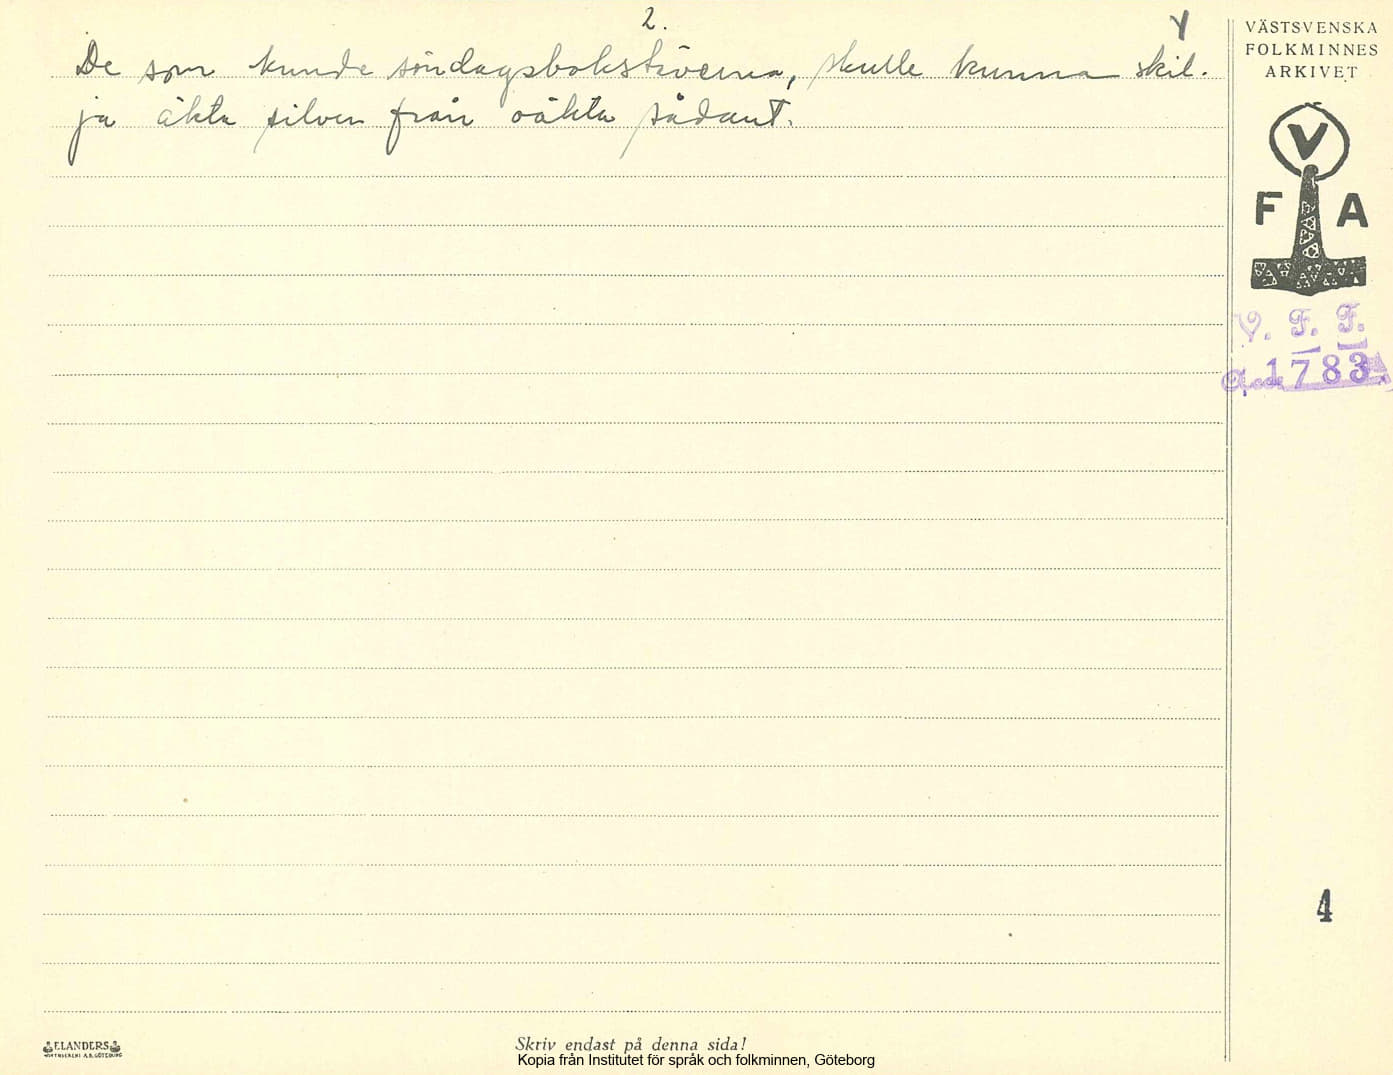 2.
De som kunde söndagsbokstäverna, skulle kunna skil-
ja äkta silver från oäkta sådant.
VÄSTSVENSKA
FOLKMINNES
ARKIVET
V
F A
V. F. F.
1783.
4
ELANDERS
Skriv endast på denna sida!
Kopia från Institutet för språk och folkminnen, Göteborg